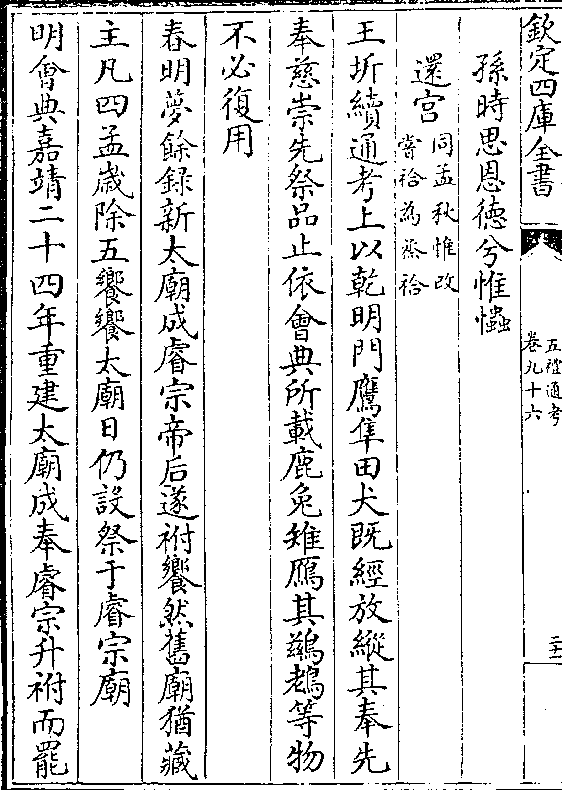 欽定四庫全書
五禮通考
卷九十六
二十二
孫時思恩德兮惟懺
還宫
同孟秋惟改
嘗祫為烝祫
王圻續通考上以乾明門鷹隼田犬既經放縱其奉先
奉慈崇先祭品止依會典所載鹿兔雉鴈其鷀鵚等物
不必復用
春明夢餘録新太廟成睿宗帝后遂祔饗然舊廟猶藏
主凡四孟歳除五饗饗太廟日仍設祭于睿宗廟
明會典嘉靖二十四年重建太廟成奉睿宗升祔而罷